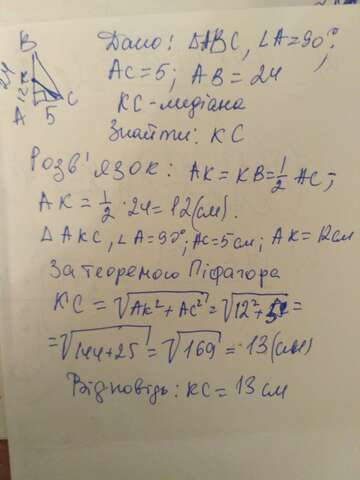 B
24
12 K
A 5 C
Дано: ΔABC, ∠A=90°;
AC=5; AB=24
KC-медіана
Знайти: KC
Розв'язок: AK=KB=1/2 AC;
AK=1/2·24=12(см).
ΔAKC, ∠A=90°; AC=5см; AK=12см
За теоремою Піфагора
KC=√AK²+AC²=√12²+5²=
=√144+25=√169=13(см)
Відповідь: KC=13см